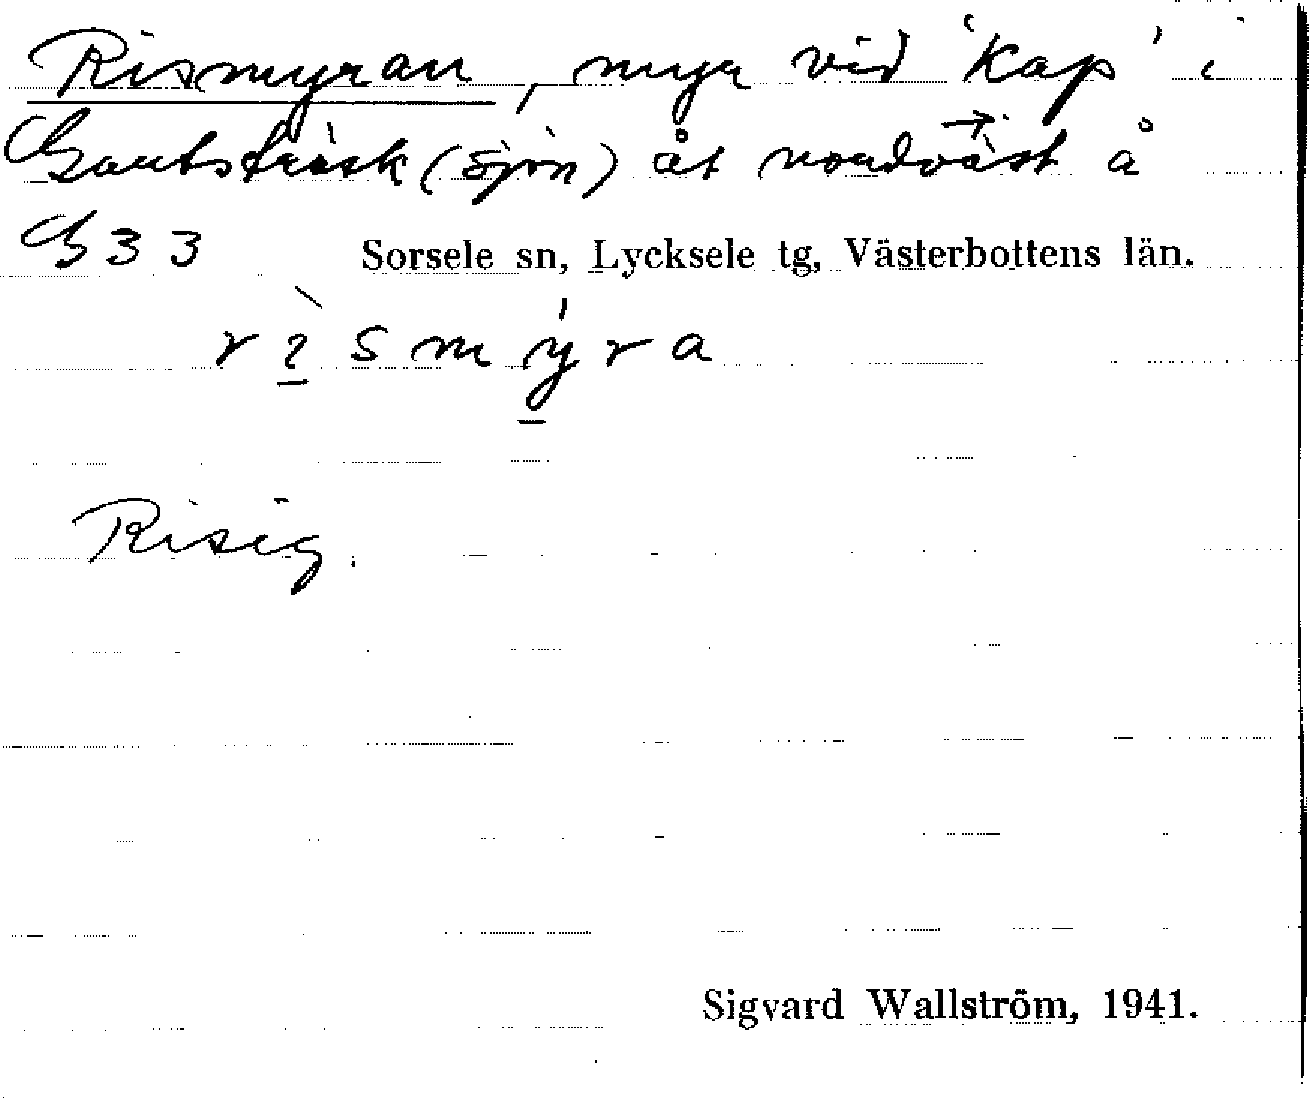 Rismyran, myr vid 'Kap' i
Gautsträsk (sjön) åt nordväst å
G 3 3 Sorsele sn, Lycksele tg, Västerbottens län.
r ì s m y ́ r a
Risig.
Sigvard Wallström, 1941.